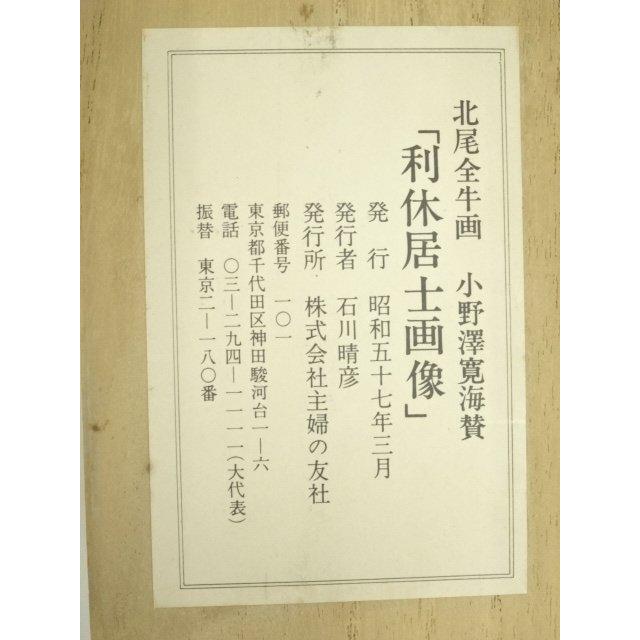 北尾全牛画　小野澤寛海賛
「利休居士画像」
発　行　昭和五十七年三月
発行者　石川晴彦
発行所　株式会社主婦の友社
郵便番号　一〇一
東京都千代田区神田駿河台一ー六
電話　〇三ー二九四ー一一一一（大代表）
振替　東京二ー一八〇番